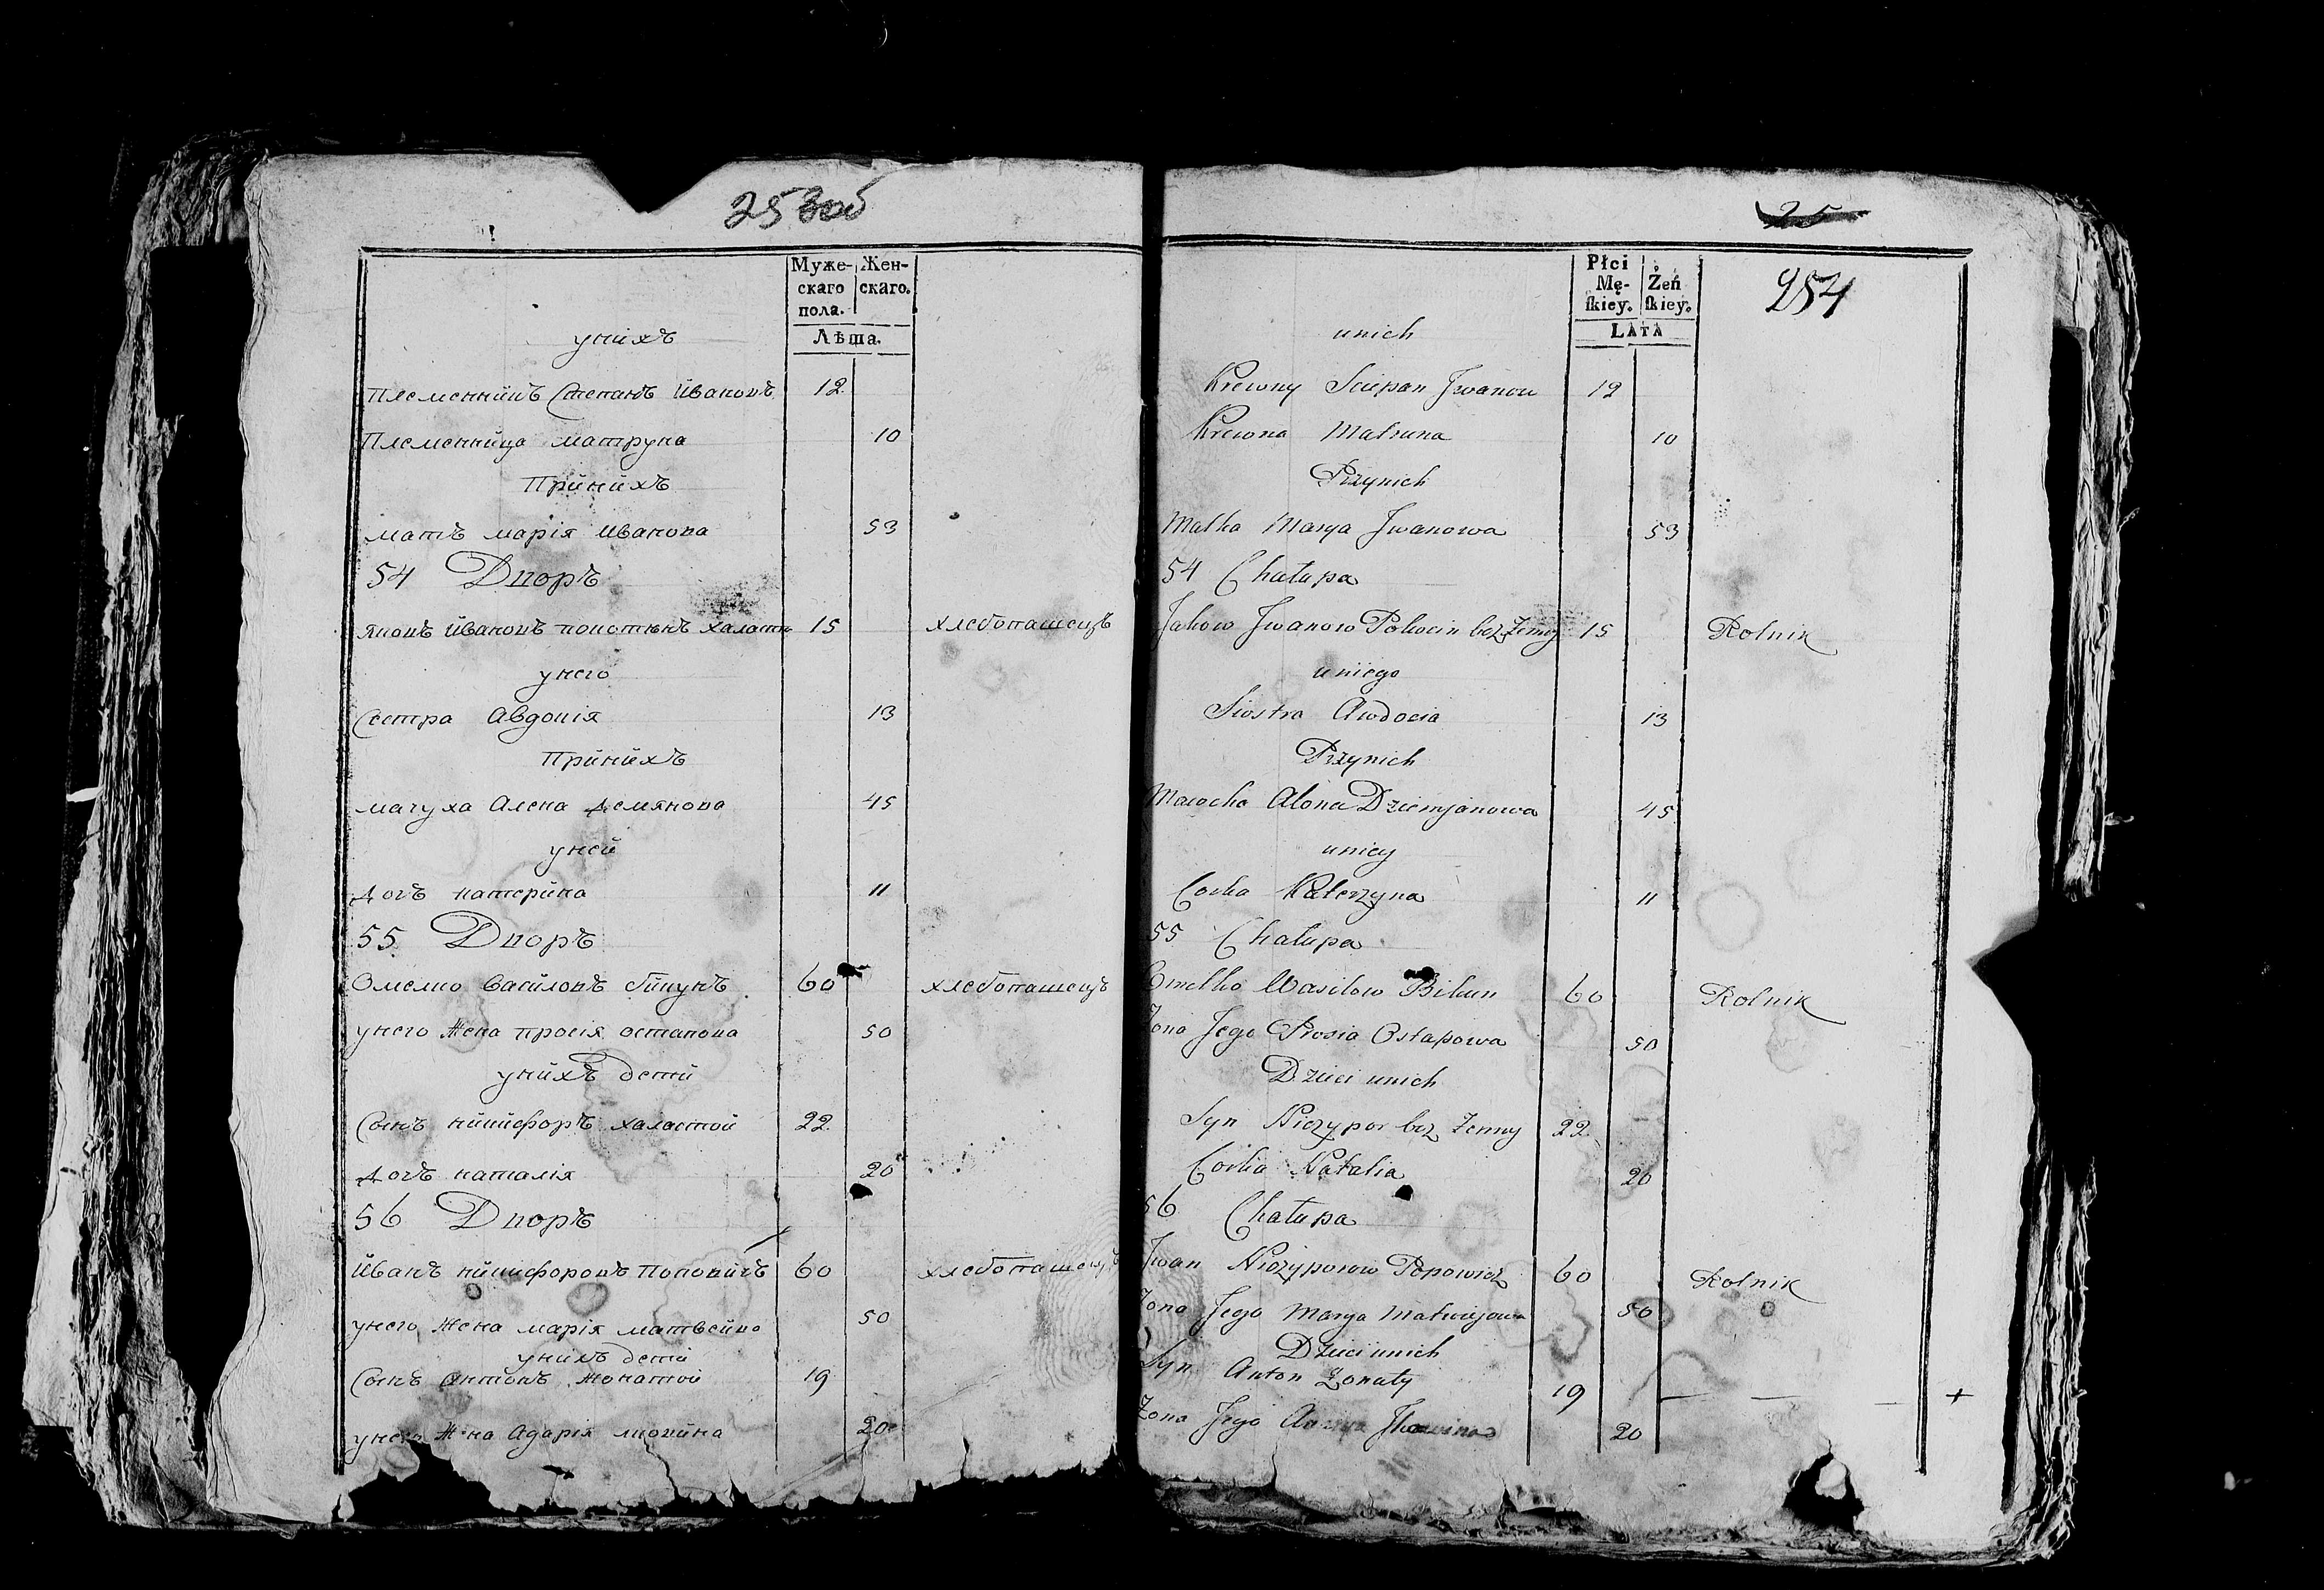 253об
Муже-
скаго
пола.
Жен-
скаго.
Лѣта.
унихъ
Племенникъ Степанъ Ивановъ 12
Племенница матруна 10
Принихъ
мать марія иванова 53
54 Дворъ
яковъ ивановъ холосты 15 хлебопашецъ
унего
Сестра Авдокія 13
Принихъ
мачуха Алена демянова 45
уней
дочь катерина 11
55 Дворъ
Омелко Василовъ бикунъ 60 хлебопашецъ
унего жена просія остапова 50
унихъ дети
Сынъ никифоръ халастой 22
дочь наталія 20
56 Дворъ
Иванъ никифоровъ Поповичъ 60 хлебопашецъ
унего жена марія матвейва 50
унихъ дети
Сынъ Антонъ жонатой 19
унего жна Адарія 20
25
254
Płci
Mę-
skiey.
Żeń
skiey.
LATA
unich
Krewny Sciepan Jwanow 12
Krewna Matruna 10
Przynich
Matka Marya Jwanowa 53
54 Chałupa
Jakow Jwanow bez Zenny 15 Rolnik
uniego
Siostra Awdocia 13
Przynich
Macocha Alona Dziemjanowa 45
uniey
Corka Katerzyna 11
55 Chałupa
Omelko Wasilow Bikun 60 Rolnik
Zona Jego Prosia Ostapowa 50
Dzieci unich
Syn Niczypor bez Zenny 22
Corka Natalia 20
56 Chałupa
Jwan Niczyporow Popowicz 60 Rolnik
Zona Jego Marya Matwiejowa 50
Dzieci unich
Syn Anton Żonaty 19
Żona Jego 20